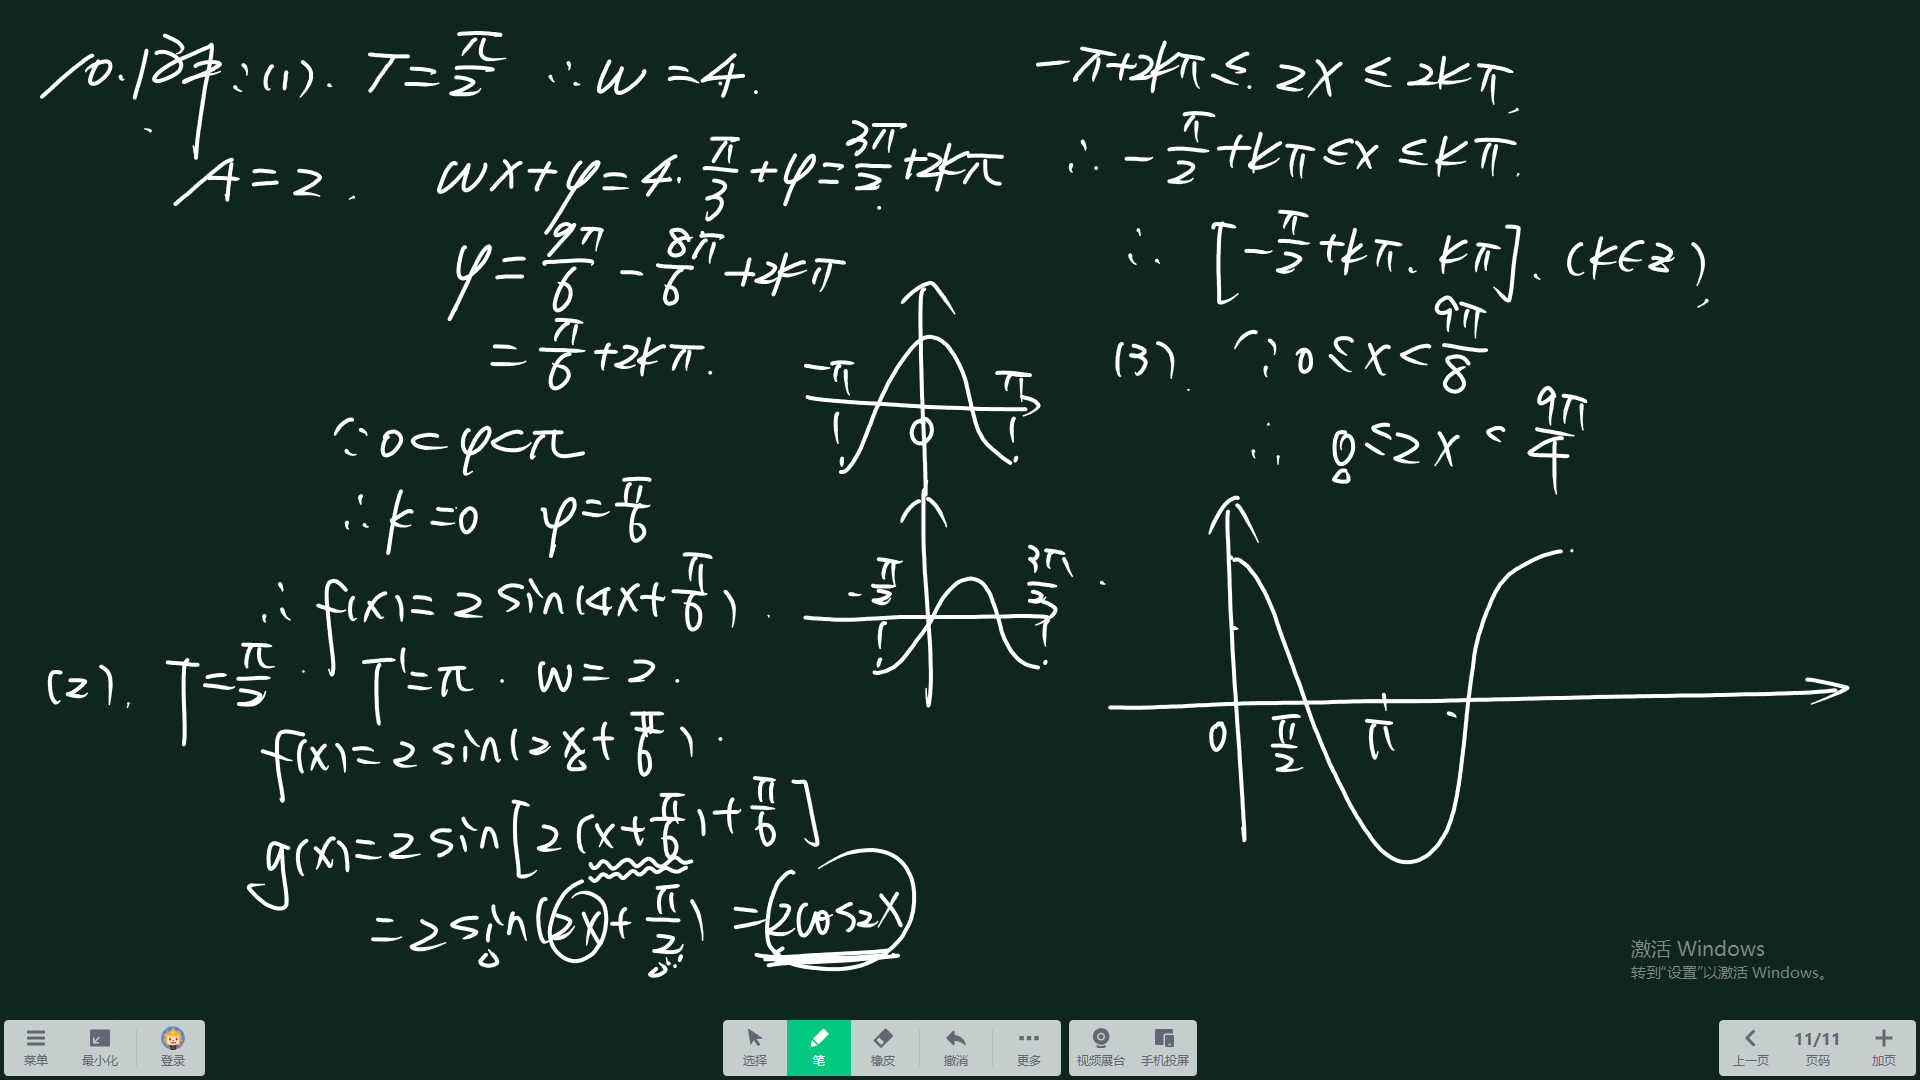 10.解:(1). T=π/2 ∴w=4.
A=2. wx+φ=4·π/3+φ=3π/2+2kπ
φ=9π/6-8π/6+2kπ
=π/6+2kπ.
∵0<φ<π
∴k=0 φ=π/6
∴f(x)=2sin(4x+π/6).
(2). T=π/2. T'=π. w=2.
f(x)=2sin(2x+π/6).
g(x)=2sin[2(x+π/6)+π/6]
=2sin(2x+π/2)=2cos2x
-π π
0
-π/2 3π/2
-π+2kπ≤2x≤2kπ.
∴-π/2+kπ≤x≤kπ.
∴[-π/2+kπ, kπ]. (k∈Z),
(3). ∵0≤x<9π/8
∴0≤2x<9π/4
0 π/2 π
激活 Windows
转到“设置”以激活 Windows。
菜单 最小化 登录 选择 笔 橡皮 撤消 更多 视频展台 手机投屏 上一页 11/11 页码 加页